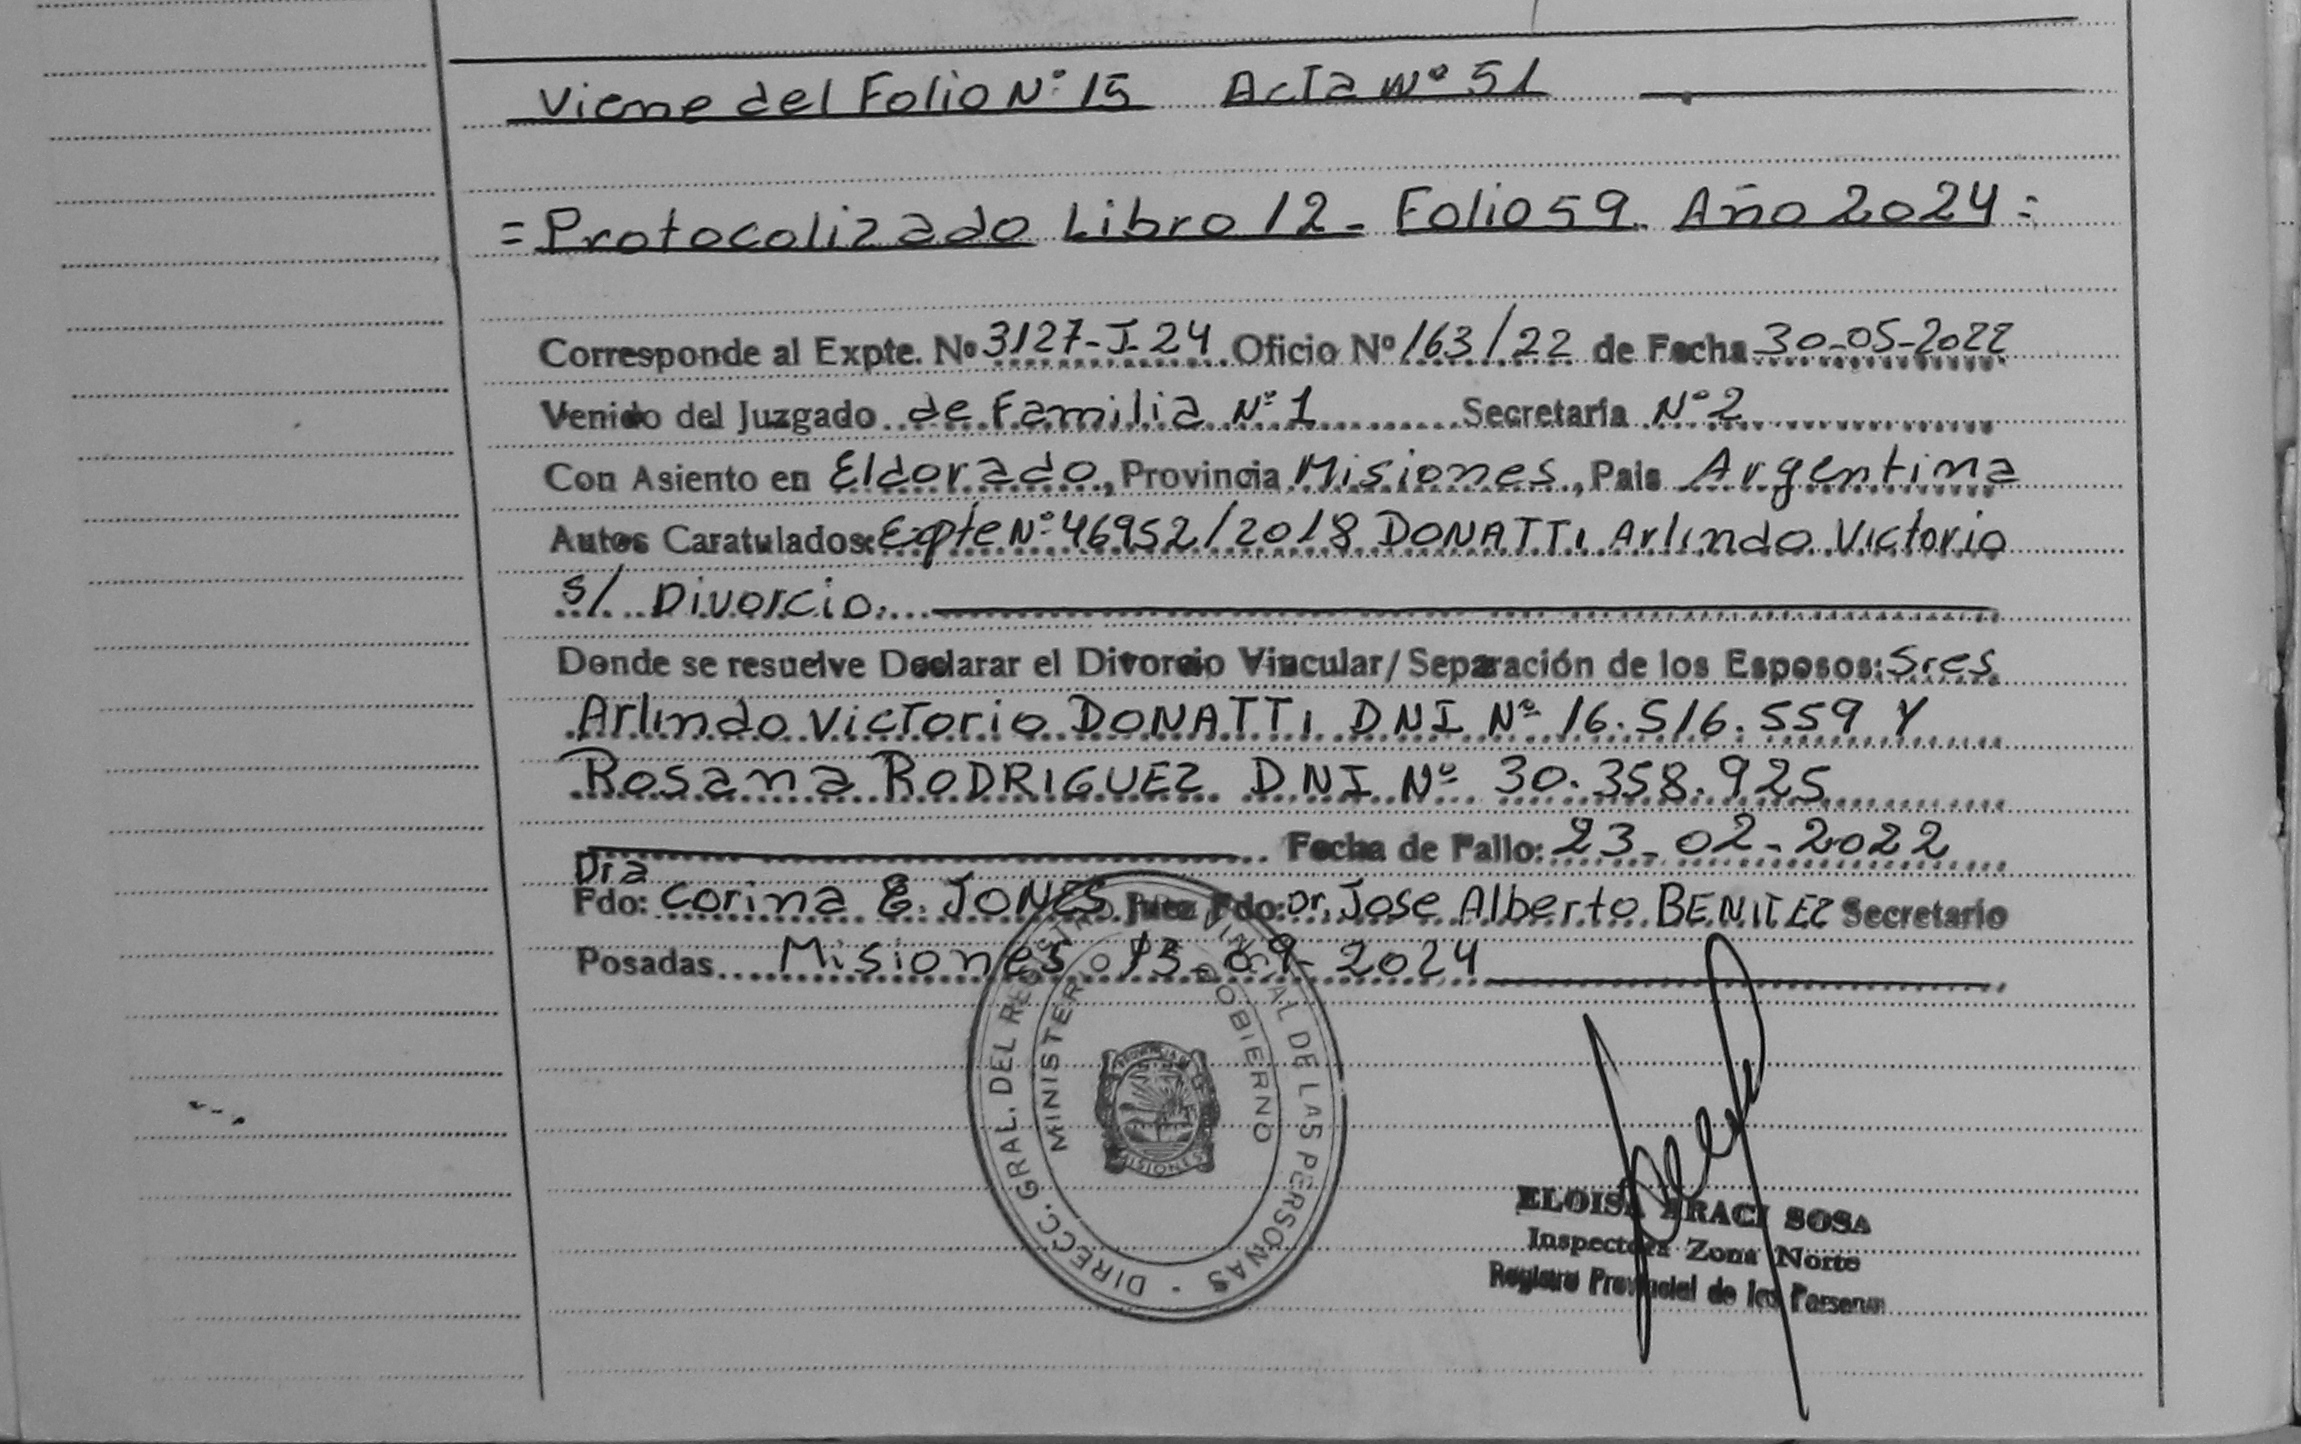 Viene del Folio Nº 15 Acta Nº 51
= Protocolizado Libro 12 - Folio 59. Año 2024 =
Corresponde al Expte. Nº 3127-J-24 Oficio Nº 163/22 de Fecha 30-05-2022
Venido del Juzgado de Familia Nº 1 Secretaría Nº 2
Con Asiento en Eldorado, Provincia Misiones, Pais Argentina
Autos Caratulados: Expte Nº 46952/2018 DONATTI Arlindo Victorio
s/ Divorcio.
Donde se resuelve Declarar el Divorcio Vincular/Separación de los Esposos: Sres
Arlindo Victorio DONATTI DNI Nº 16.516.559 Y
Rosana RODRIGUEZ DNI Nº 30.358.925
Fecha de Fallo: 23-02-2022
Dra
Fdo: Corina E. JONES Juez Fdo: Dr. Jose Alberto BENITEZ Secretario
Posadas Misiones 13-09-2024
DIRECC. GRAL. DEL REGISTRO PROVINCIAL DE LAS PERSONAS
MINISTERIO GOBIERNO
MISIONES
ELOISA ARACI SOSA
Inspectora Zona Norte
Registro Provincial de las Personas